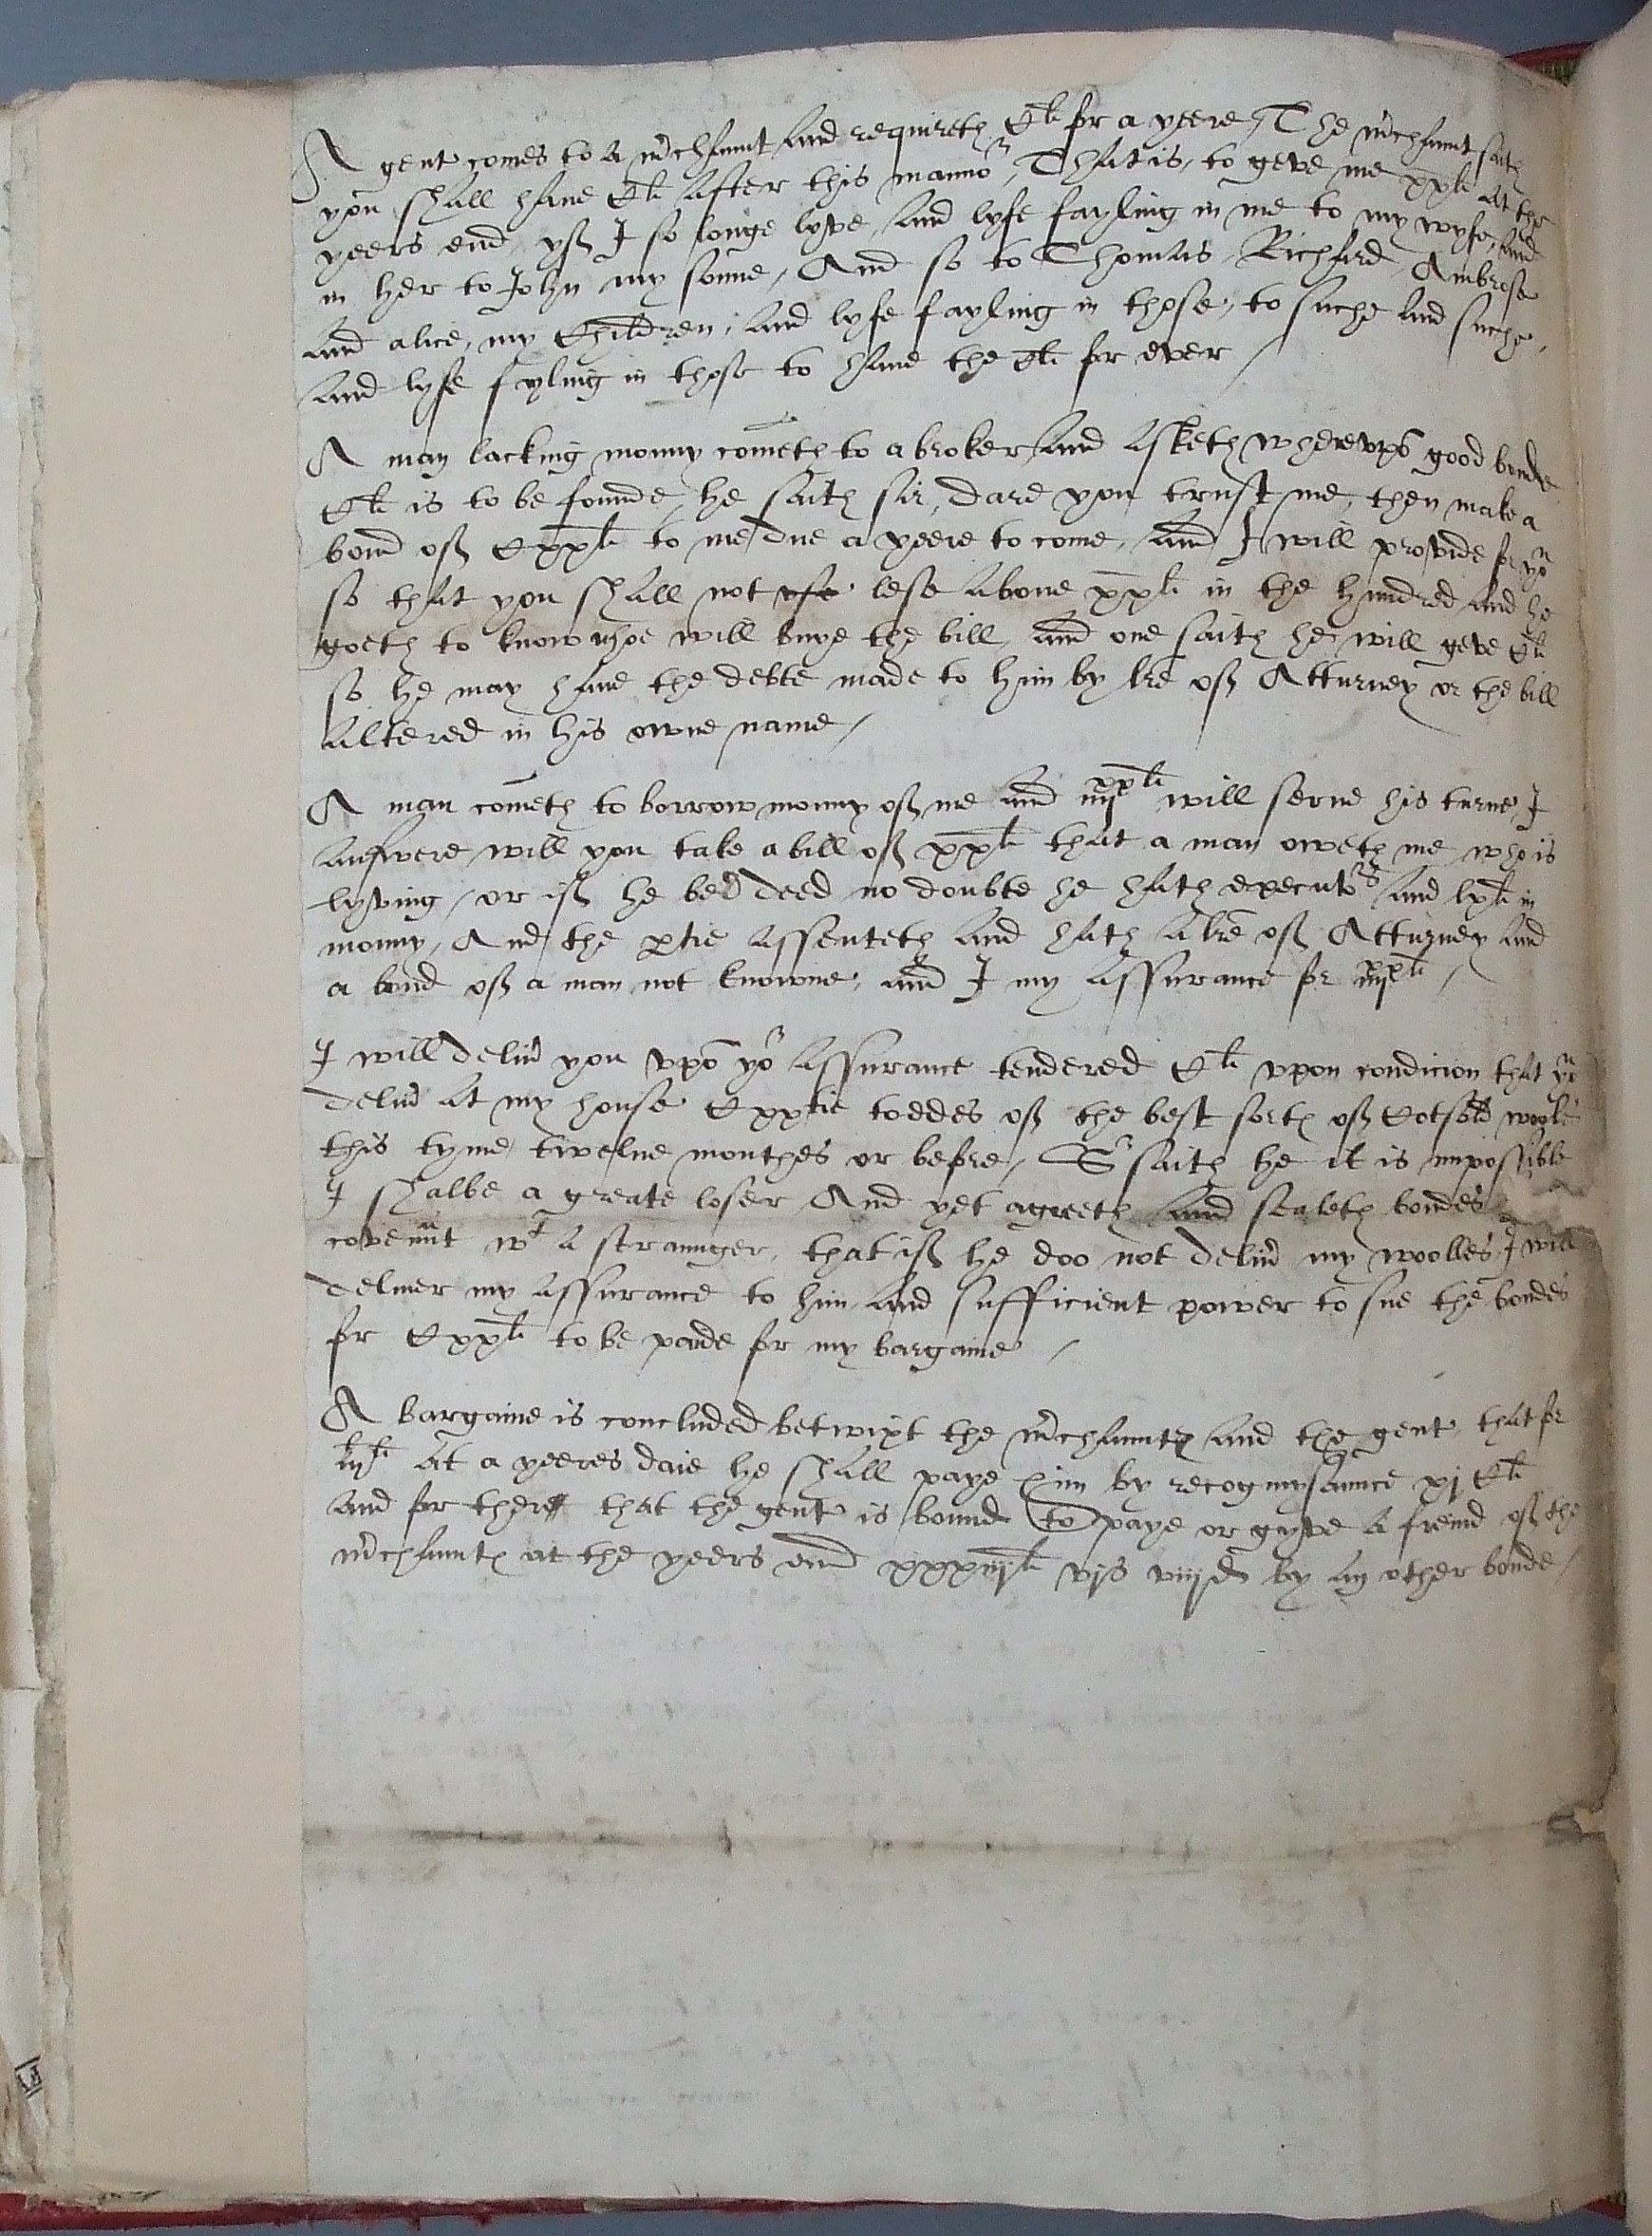 A gent comes to a mrchaunt and requireth Cli for a yeere, The mrchaunt saith
you shall haue Cli after this mannor, That is, to geve me xxli at the
yeers end, yff I so longe lyve, and lyfe fayling in me to my wyfe, and
in her to John my sonne, And so to Thomas, Richard, Ambrose
and alice, my Children, and lyfe fayling in those, to suche and suche,
and lyfe fyling in those to haue the Cli for ever /
A man lacking monny cometh to a broker and asketh wherevpo good bonde
Cli is to be founde, he saith sir, dare you trust me, then make a
bond off Cxxli to me due a yeere to come, and I will provide for you
so that you shall not lese aboue xxli in the hundred and he
goeth to know whoe will buye the bill, and one saith he will geve Cli
so he may haue the debte made to him by lre off Atturney or the bill
altered in his owne name /
A man cometh to borrow monny off me and iiijxxli will serue his turne, I
answere will you take a bill off xxli that a man oweth me, who is
lyving, or iff he be deed no doubte he hath executors and lxli in
monny, And the ptie assenteth and hath a lre off Atturney and
a bond off a man not knowne, and I my assurance for iiijxxli /
I will deliur you vpo yor assurance tendered Cli vpon condicion that you
deliur at my house Cxxtie toddes off the best sorte off Cotsold wools
this tyme twelue monthes or before / Sr saith he it is impossible
I shalbe a greate loser And yet agreeth and sealeth bondes I
covennt wt a straunger, that iff he doo not deliur my woolles, I will
deliuer my assurance to him and sufficient power to sue the bondes
for Cxxli to be paide for my bargaine /
A bargaine is concluded betwixt the mrchaunte and the gent, that for
at a yeeres daie he shall paye him by recognysaunce xj Cli
and for there that the gent is bound to paye or gyve a freind off the
mrchaunte at the yeers end xxxiijli vjs viijd by an other bonde /